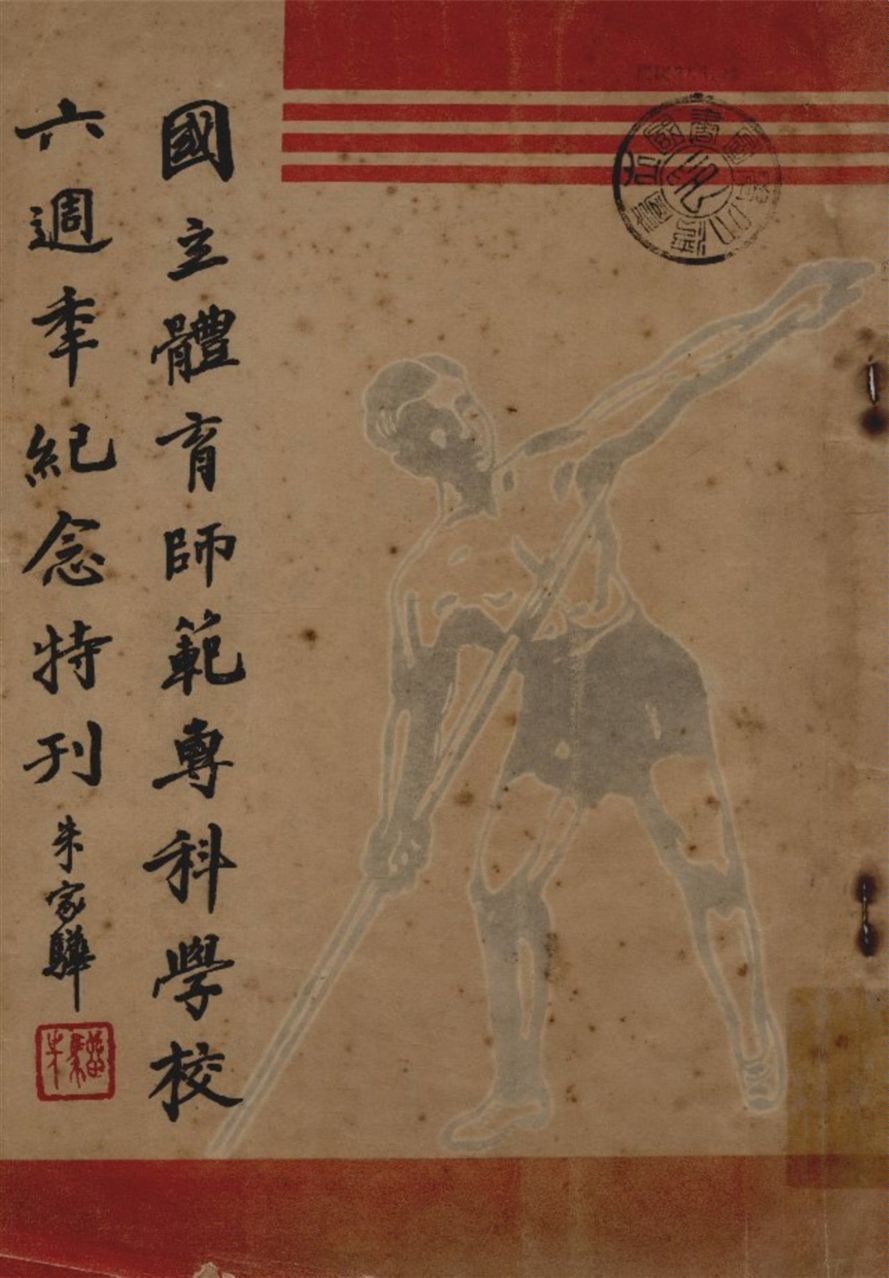 國立體育師範專科學校
六週年紀念特刊
朱家驊